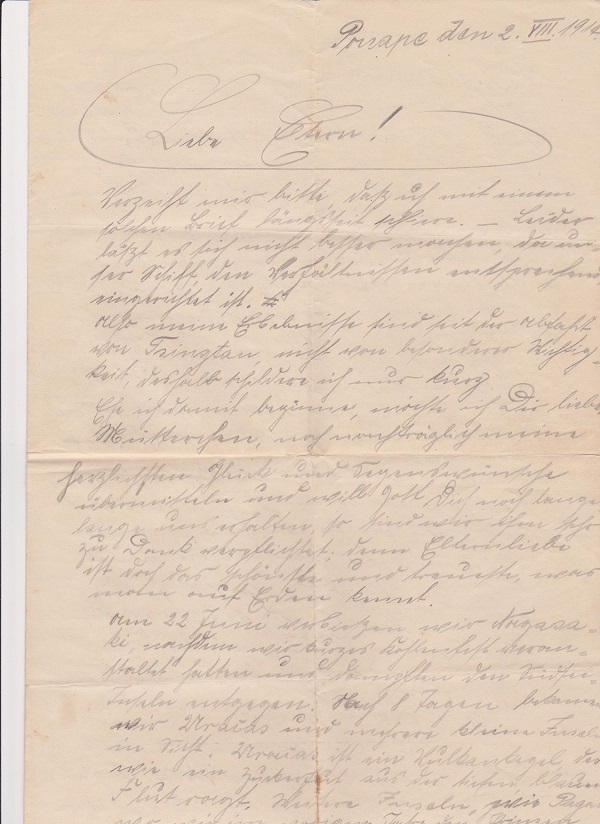 Ponape den 2. VIII. 1914.
Liebe Eltern!
Verzeiht mir bitte, daß ich mit einem
solchen Brief längsseit schiere. — Leider
läßt es sich nicht besser machen, da un-
ser Schiff den Verhältnissen entsprechend
eingerichtet ist.
Also meine Erlebnisse sind seit der Abfahrt
von Tsingtau, nicht von besonderer Wichtig-
keit, deshalb schildere ich nur kurz
Ehe ich damit beginne, möchte ich Dir liebes
Mütterchen, noch nachträglich meine
herzlichsten Glück und Segenswünsche
übermitteln und will Gott Dich noch lange
lange uns erhalten, so sind wir ihm sehr
zu Dank verpflichtet, denn Elternliebe
ist doch das schönste und treueste, was
man auf Erden kennt.
Am 22 Juni verließen wir Nagasa-
ki, nachdem wir kurzes Kohlenfest veran-
staltet hatten und dampften den Südsee-
Inseln entgegen. Nach 8 Tagen bekamen
wir Uracas und mehrere kleine Inseln
in Sicht. Uracas ist ein Vulkankegel, der
wie ein Zuckerhut aus der tiefen, blauen
Flut ragt. Weitere Inseln, wie Pagan
wo wir im vorigen Jahre den